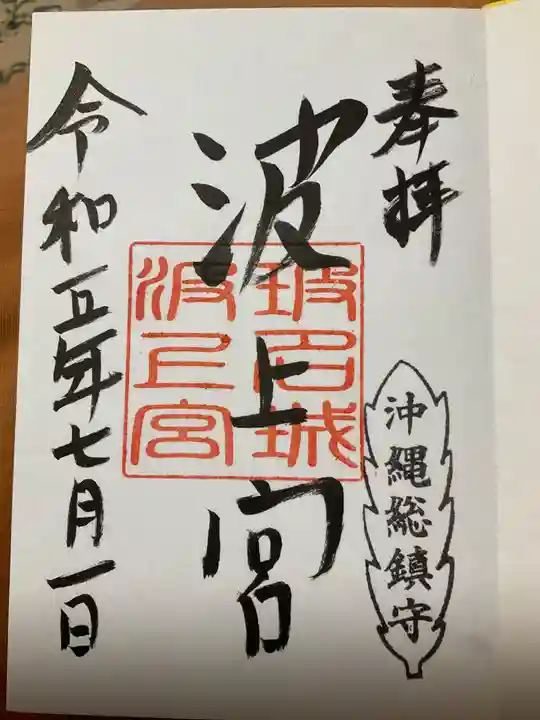 奉拝
沖縄総鎮守
波上宮
令和五年七月一日
波上宮